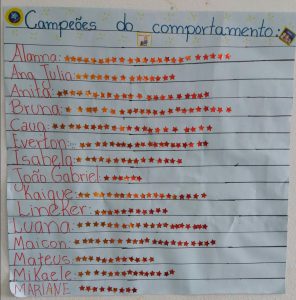 Campeões do comportamento:
Alanna:
Ana Julia:
Anita:
Bruna:
Cauã:
Everton:
Isabela:
João Gabriel:
Kaique:
Lineker:
Luana:
Maicon:
Mateus:
Mikaele:
MARIANE